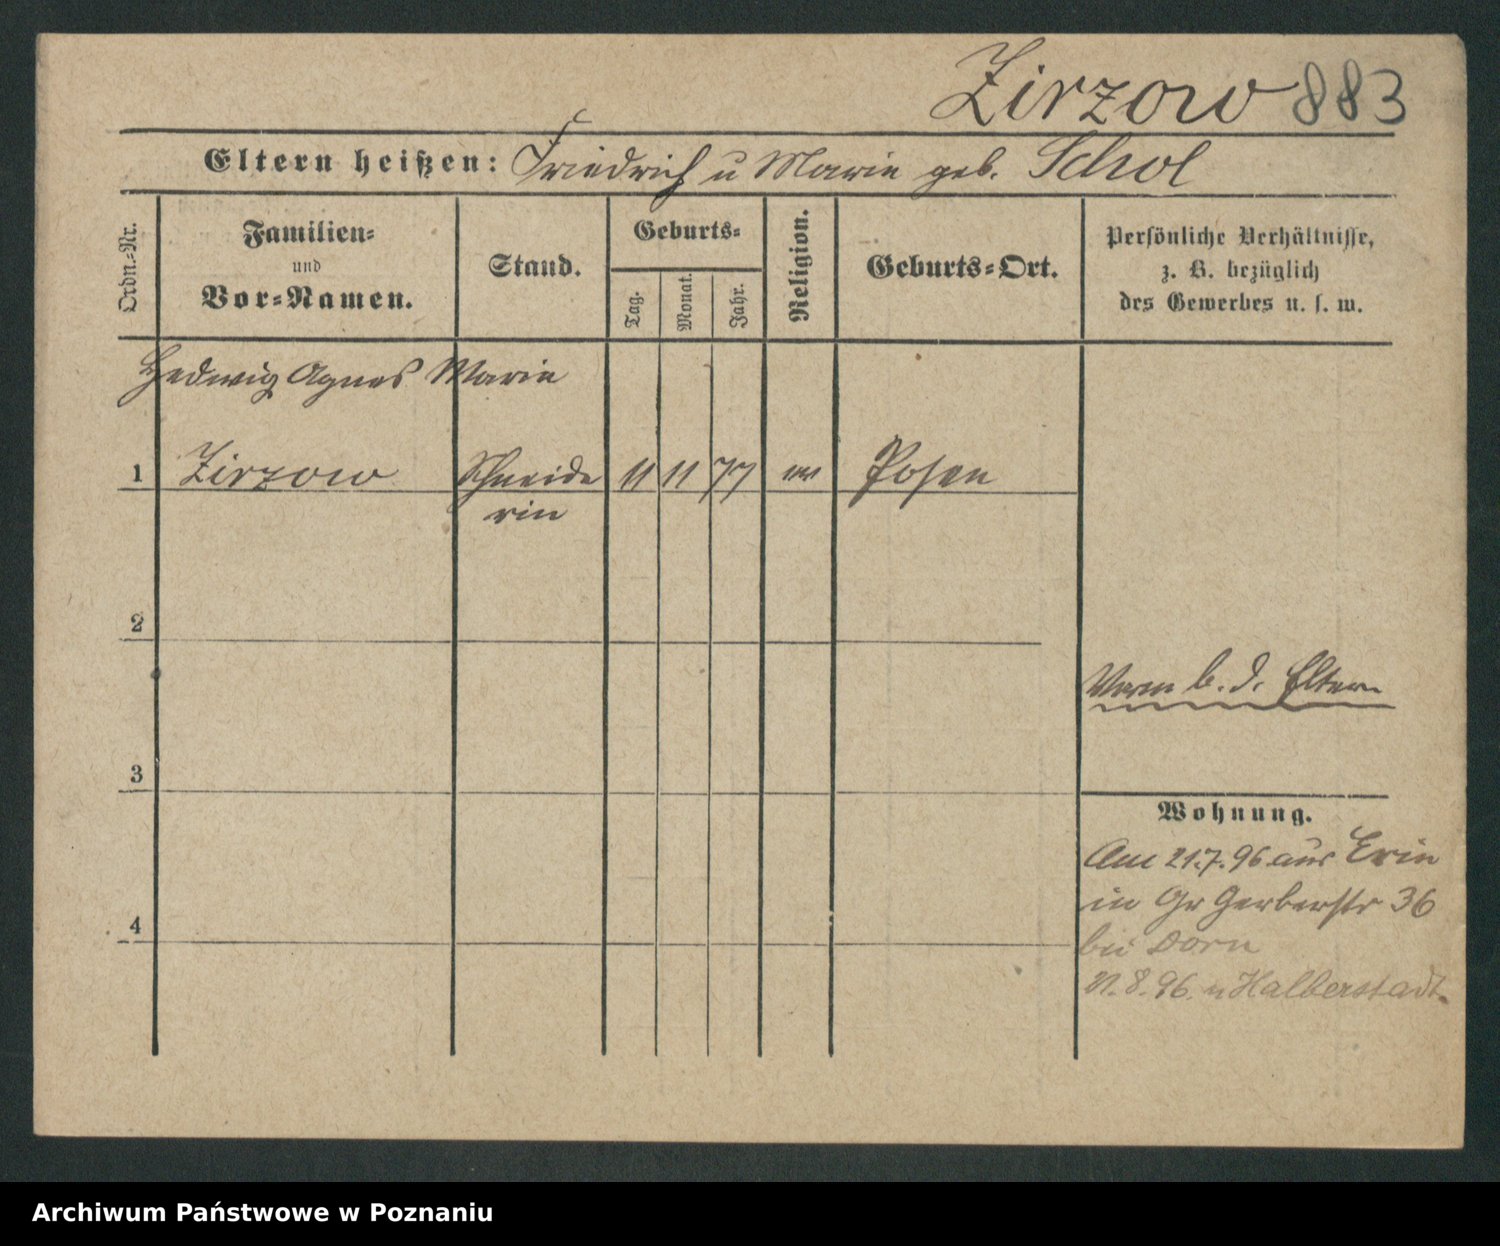 Zirzow 883
Eltern heißen: Friedrich u Marie geb. Schol
Ordn.-Nr.
Familien-
und
Vor-Namen.
Stand.
Geburts-
Tag.
Monat.
Jahr.
Religion.
Geburts-Ort.
Persönliche Verhältnisse,
z. B. bezüglich
des Gewerbes u. s. w.
Hedwig Agnes Marie
1 Zirzow Schneide 11 11 77 ev Posen
rin
2
Verm b. d. Eltern
3
Wohnung.
Am 21.7.96 aus Exin
in Gr Gerberstr 36
4
bei Dorn
21.8.96. n Halberstadt.
Archiwum Państwowe w Poznaniu